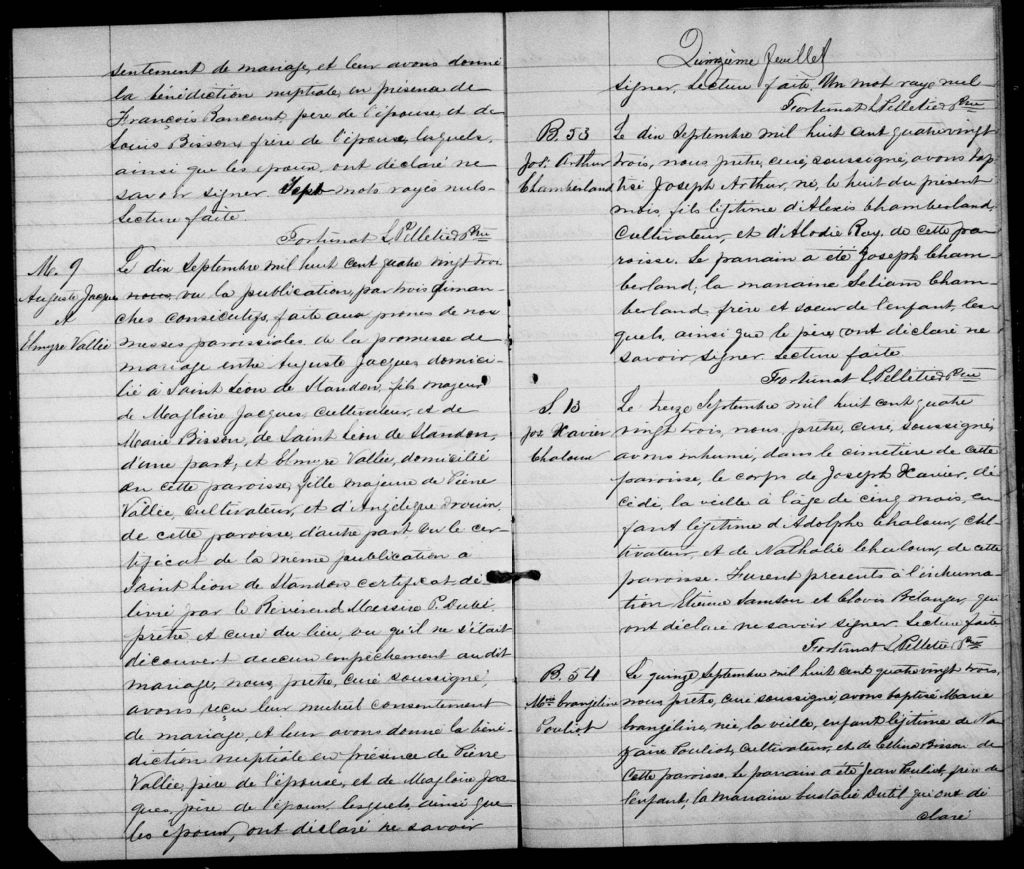 sentement de mariage, et leur avons donné
la bénédiction nuptiale, en présence de
François Rancourt, père de l'épouse, et de
Louis Bisson, frère de l'épouse, lesquels,
ainsi que les époux, ont déclaré ne
savoir signer. Sept mots rayés nuls.
Lecture faite.
Fortunat L Pelletier Ptre
M. 9
Auguste Jacques
et
Elmyre Vallée
Le dix Septembre mil huit cent quatre vingt trois
nous, vu la publication, par trois diman-
ches consécutifs, faite aux prones de nos
messes paroissiales, de la promesse de
mariage entre Auguste Jacques, domici-
lié à Saint Léon de Standon, fils majeur
de Magloire Jacques, cultivateur, et de
Marie Bisson, de Saint Léon de Standon,
d'une part, et Elmyre Vallée, domiciliée
en cette paroisse, fille majeure de Pierre
Vallée, cultivateur, et d'Angélique Drouin,
de cette paroisse, d'autre part, vu le cer-
tificat de la même publication à
Saint Léon de Standon, certificat dé-
livré par le Révérend Messire P. Dubé,
prêtre et curé du lieu, vu qu'il ne s'était
découvert aucun empêchement au dit
mariage, nous, prêtre, curé soussigné,
avons reçu leur mutuel consentement
de mariage, et leur avons donné la béné-
diction nuptiale en présence de Pierre
Vallée, père de l'épouse, et de Magloire Jac-
ques, père de l'époux, lesquels, ainsi que
les époux, ont déclaré ne savoir
Quinzième feuillet
signer. Lecture faite. Un mot rayé nul
Fortunat L Pelletier Ptre
B. 53
Jos. Arthur
Chamberland
Le dix Septembre mil huit cent quatre vingt
trois, nous, prêtre, curé, soussigné, avons bap-
tisé Joseph Arthur, né, le huit du présent
mois, fils légitime d'Alexis Chamberland,
cultivateur, et d'Elodie Roy, de cette pa-
roisse. Le parrain a été Joseph Cham-
berland, la marraine Chamberland,
frère et soeur de l'enfant, les-
quels, ainsi que le père, ont déclaré ne
savoir signer. Lecture faite
Fortunat L Pelletier Ptre
S. 13
Jos Xavier
Chaloux
Le treize Septembre mil huit cent quatre
vingt trois, nous, prêtre, curé, soussigné,
avons inhumé, dans le cimetière de cette
paroisse, le corps de Joseph Xavier, dé-
cédé, la veille à l'âge de cinq mois, en-
fant légitime d'Adolphe Chaloux, cul-
tivateur, et de Nathalie Chaloux, de cette
paroisse. Furent présents à l'inhuma-
tion Etienne Samson et Clovis Bélanger, qui
ont déclaré ne savoir signer. Lecture faite
Fortunat L Pelletier Ptre
B. 54
Mie Evangéline
Pouliot
Le quinze Septembre mil huit cent quatre vingt trois,
nous, prêtre, curé soussigné, avons baptisé Marie
Evangéline, née, la veille, enfant légitime de Na-
zaire Pouliot, cultivateur, et de Célina Bisson de
cette paroisse. Le parrain a été Jean Pouliot, père de
l'enfant, la marraine Eustalie Dutil qui ont dé-
claré